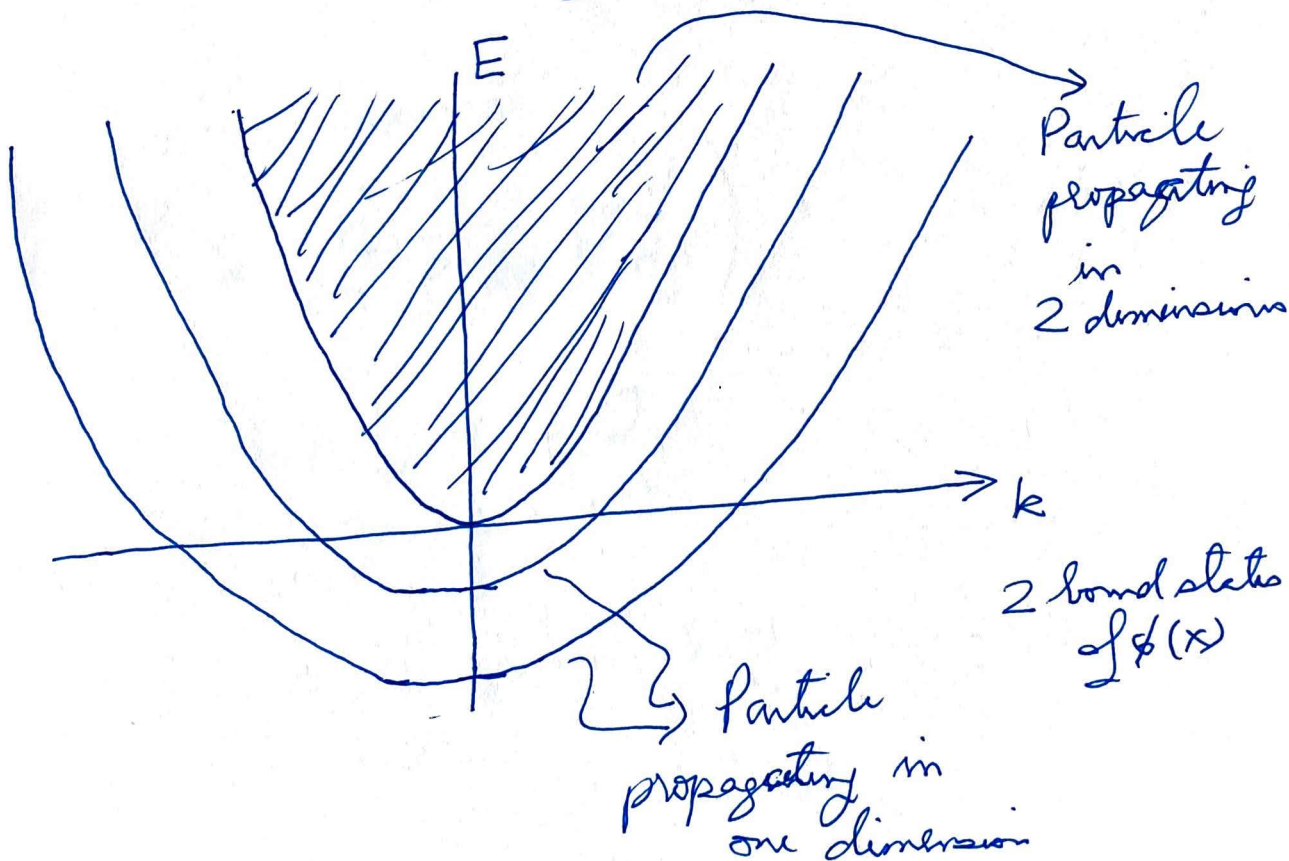 E
Particle
propagating
in
2 dimensions
k
2 bound states
of ϕ(x)
Particle
propagating in
one dimension